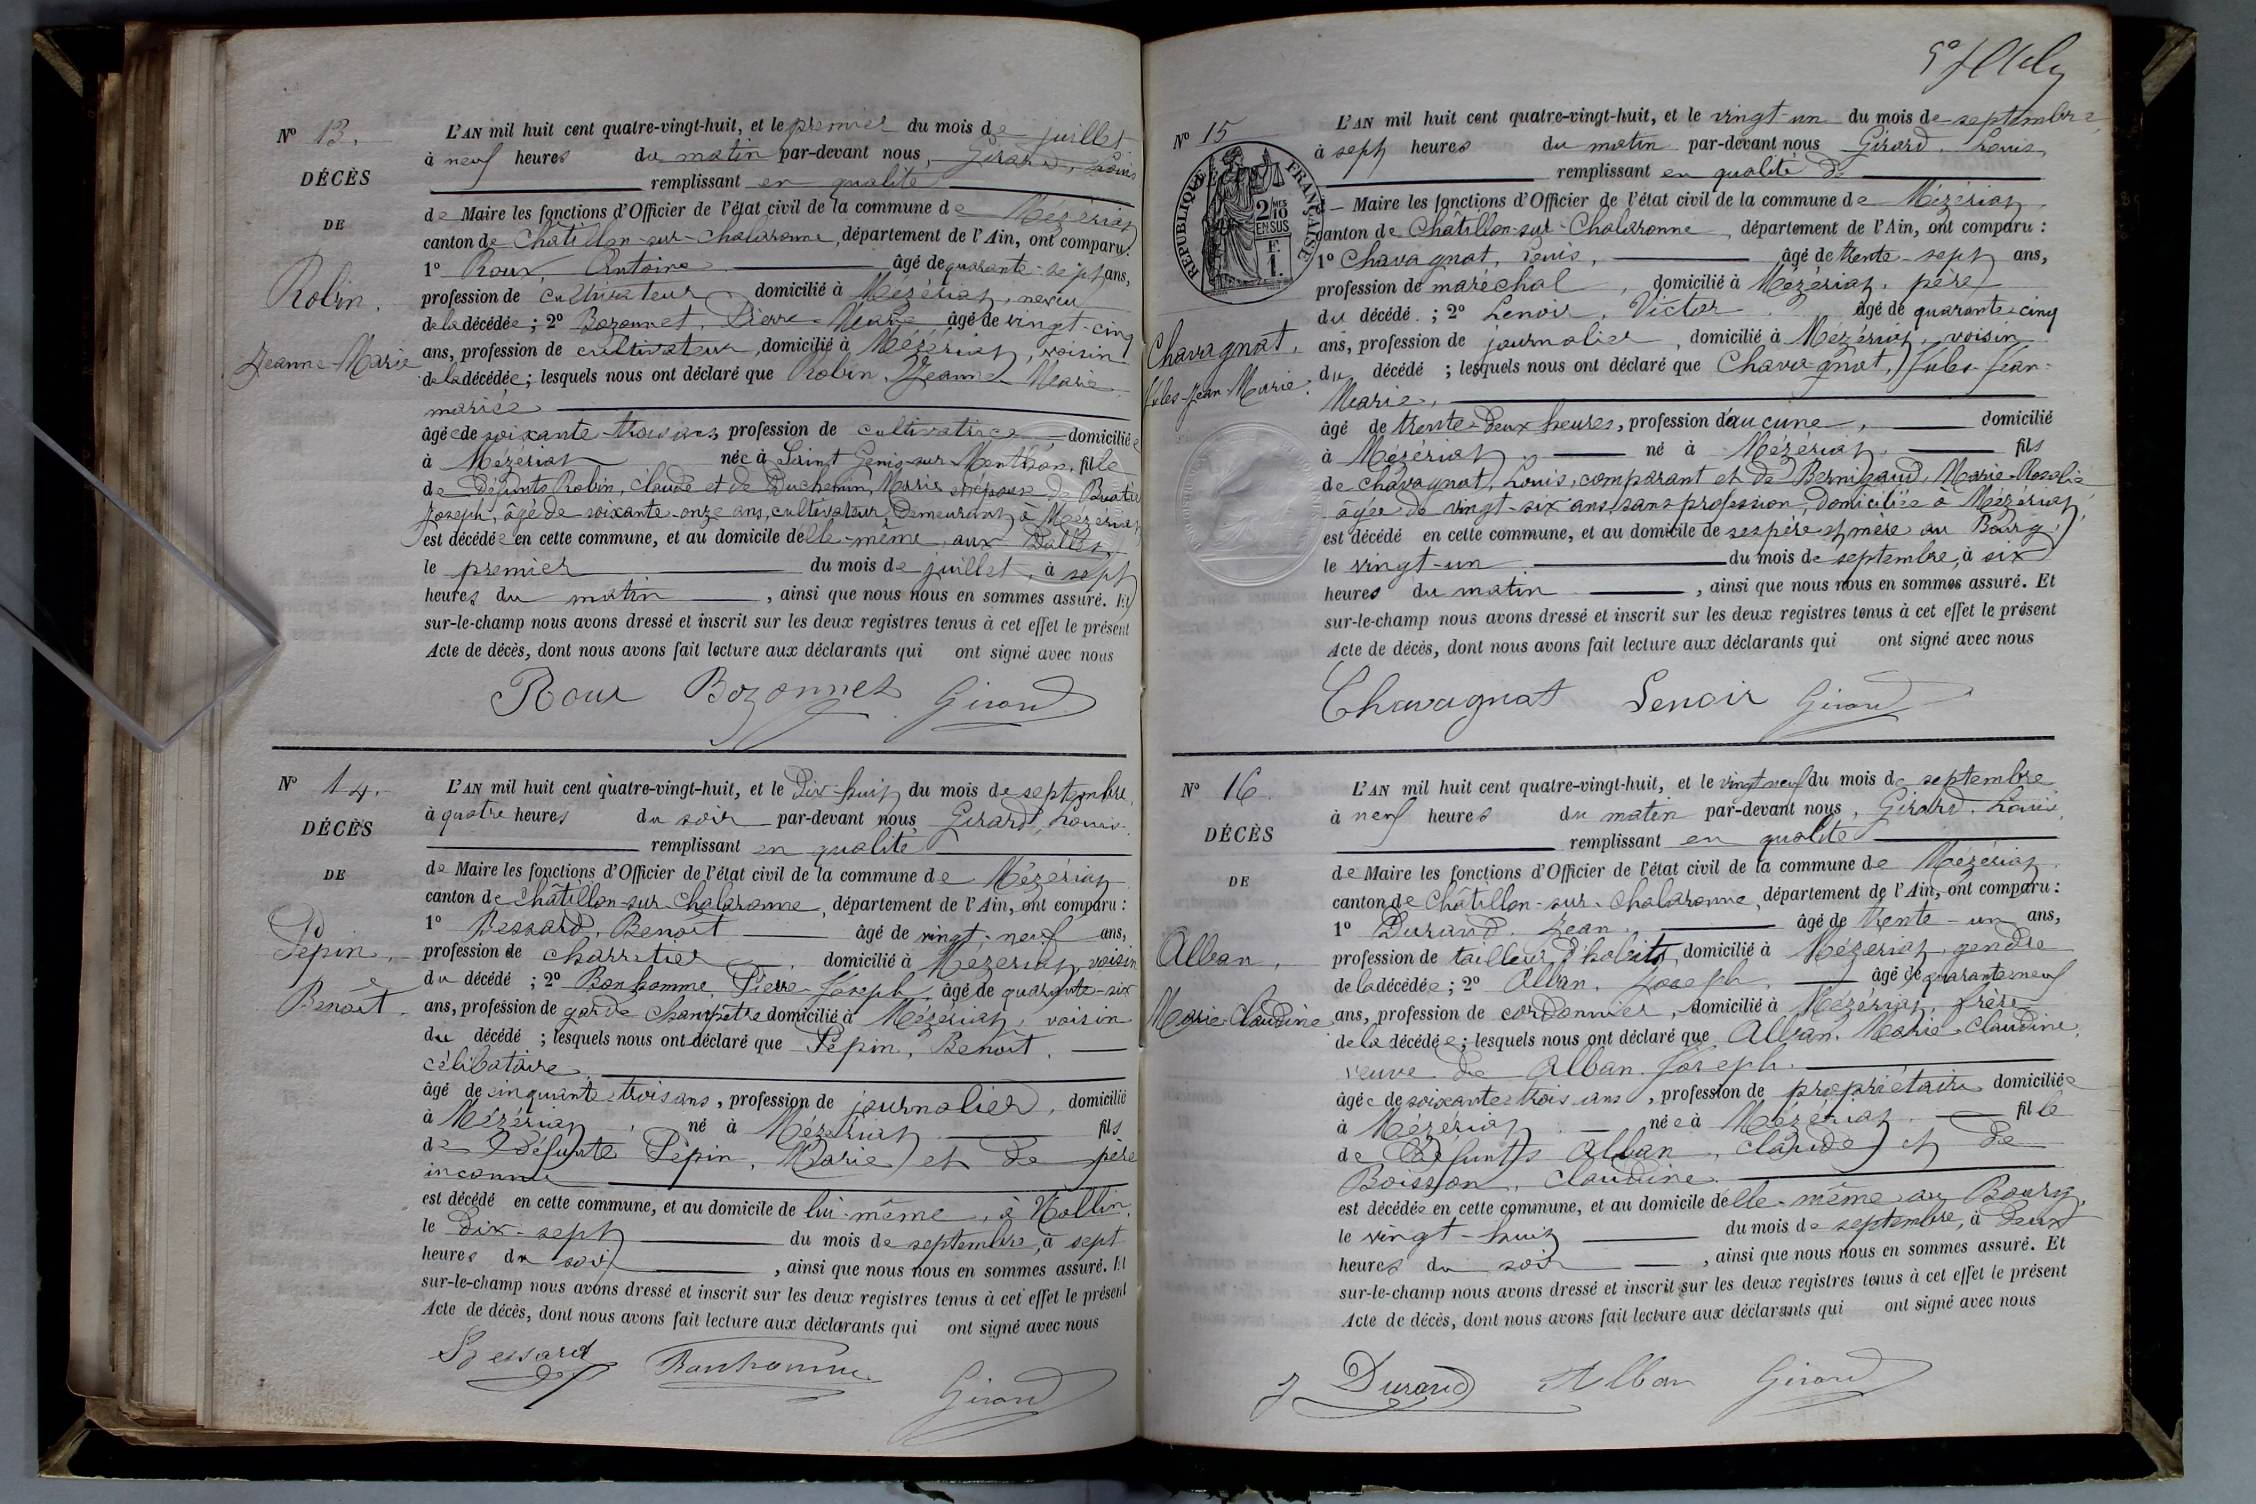 Nº 13.
DÉCÈS
DE
Robin.
Jeanne-Marie
L'AN mil huit cent quatre-vingt-huit, et le premier du mois de juillet
à neuf heures du matin par-devant nous, Girard, Louis
remplissant en qualité
de Maire les fonctions d'Officier de l'état civil de la commune de Mézériat
canton de Châtillon-sur-Chalaronne, département de l'Ain, ont comparu:
1º Roux, Antoine âgé de quarante-sept ans,
profession de cultivateur domicilié à Mézériat, neveu
de la décédée; 2º Bozonnet, Pierre-Marie âgé de vingt-cinq
ans, profession de cultivateur, domicilié à Mézériat, voisin
de la décédée; lesquels nous ont déclaré que Robin, Jeanne-Marie
mariée
âgée de soixante-trois ans, profession de cultivatrice domiciliée
à Mézériat née à Saint Genis-sur-Menthon, fille
de défunts Robin, Claude et de Duchemin, Marie et épouse de
Joseph, âgé de soixante-onze ans, cultivateur, demeurant à Mézériat
est décédée en cette commune, et au domicile d'elle-même, aux
le premier du mois de juillet, à sept
heures du matin, ainsi que nous nous en sommes assuré. Et
sur-le-champ nous avons dressé et inscrit sur les deux registres tenus à cet effet le présent
Acte de décès, dont nous avons fait lecture aux déclarants qui ont signé avec nous
Roux Bozonnet Girard
Nº 14.
DÉCÈS
DE
Pépin,
Benoît.
L'AN mil huit cent quatre-vingt-huit, et le dix-huit du mois de septembre,
à quatre heures du soir par-devant nous Girard, Louis.
remplissant en qualité
de Maire les fonctions d'Officier de l'état civil de la commune de Mézériat
canton de Châtillon-sur-Chalaronne, département de l'Ain, ont comparu:
1º Bessard, Benoît âgé de vingt-neuf ans,
profession de charretier, domicilié à Mézériat, voisin
du décédé; 2º Bonhomme, Pierre-Joseph, âgé de quarante-six
ans, profession de garde champêtre domicilié à Mézériat, voisin
du décédé; lesquels nous ont déclaré que Pépin, Benoît,
célibataire.
âgé de cinquante-trois ans, profession de journalier, domicilié
à Mézériat, né à Mézériat fils
de défunte Pépin, Marie et de père
inconnu
est décédé en cette commune, et au domicile de lui-même, à
le dix-sept du mois de septembre, à sept
heures du soir, ainsi que nous nous en sommes assuré. Et
sur-le-champ nous avons dressé et inscrit sur les deux registres tenus à cet effet le présent
Acte de décès, dont nous avons fait lecture aux déclarants qui ont signé avec nous
Bessard Bonhomme Girard
Nº 15
RÉPUBLIQUE FRANÇAISE
2 MES
10
EN SUS
F.
1.
Chavagnat,
Jules-Jean-Marie.
L'AN mil huit cent quatre-vingt-huit, et le vingt-un du mois de septembre,
à sept heures du matin par-devant nous Girard, Louis
remplissant en qualité de
Maire les fonctions d'Officier de l'état civil de la commune de Mézériat.
canton de Châtillon-sur-Chalaronne, département de l'Ain, ont comparu:
1º Chavagnat, Louis, âgé de trente-sept ans,
profession de maréchal, domicilié à Mézériat, père
du décédé.; 2º Lenoir, Victor. âgé de quarante-cinq
ans, profession de journalier, domicilié à Mézériat, voisin
du décédé; lesquels nous ont déclaré que Chavagnat, Jules-Jean-
Marie,
âgé de trente-deux heures, profession d'aucune, domicilié
à Mézériat. né à Mézériat. fils
de Chavagnat, Louis, comparant et de Bernigaud, Marie-Rosalie
âgée de vingt-six ans, sans profession, domiciliée à Mézériat,
est décédé en cette commune, et au domicile de ses père et mère au Bourg,
le vingt-un du mois de septembre, à six
heures du matin, ainsi que nous nous en sommes assuré. Et
sur-le-champ nous avons dressé et inscrit sur les deux registres tenus à cet effet le présent
Acte de décès, dont nous avons fait lecture aux déclarants qui ont signé avec nous
Chavagnat Lenoir Girard
Nº 16.
DÉCÈS
DE
Alban,
Marie-Claudine.
L'AN mil huit cent quatre-vingt-huit, et le vingt-neuf du mois de septembre
à neuf heures du matin par-devant nous, Girard, Louis,
remplissant en qualité
de Maire les fonctions d'Officier de l'état civil de la commune de Mézériat.
canton de Châtillon-sur-Chalaronne, département de l'Ain, ont comparu:
1º Durand, Jean. âgé de trente-un ans,
profession de tailleur d'habits, domicilié à Mézériat, gendre
de la décédée; 2º Alban, Joseph, âgé de quarante-neuf
ans, profession de cordonnier, domicilié à Mézériat, frère
de la décédée; lesquels nous ont déclaré que Alban, Marie-Claudine,
veuve de Alban Joseph.
âgée de soixante-trois ans, profession de propriétaire domiciliée
à Mézériat. née à Mézériat. fille
de défunts Alban, Claude et de
Boisson, Claudine.
est décédée en cette commune, et au domicile d'elle-même au Bourg,
le vingt-huit du mois de septembre, à deux
heures du soir, ainsi que nous nous en sommes assuré. Et
sur-le-champ nous avons dressé et inscrit sur les deux registres tenus à cet effet le présent
Acte de décès, dont nous avons fait lecture aux déclarants qui ont signé avec nous
J Durand Alban Girard